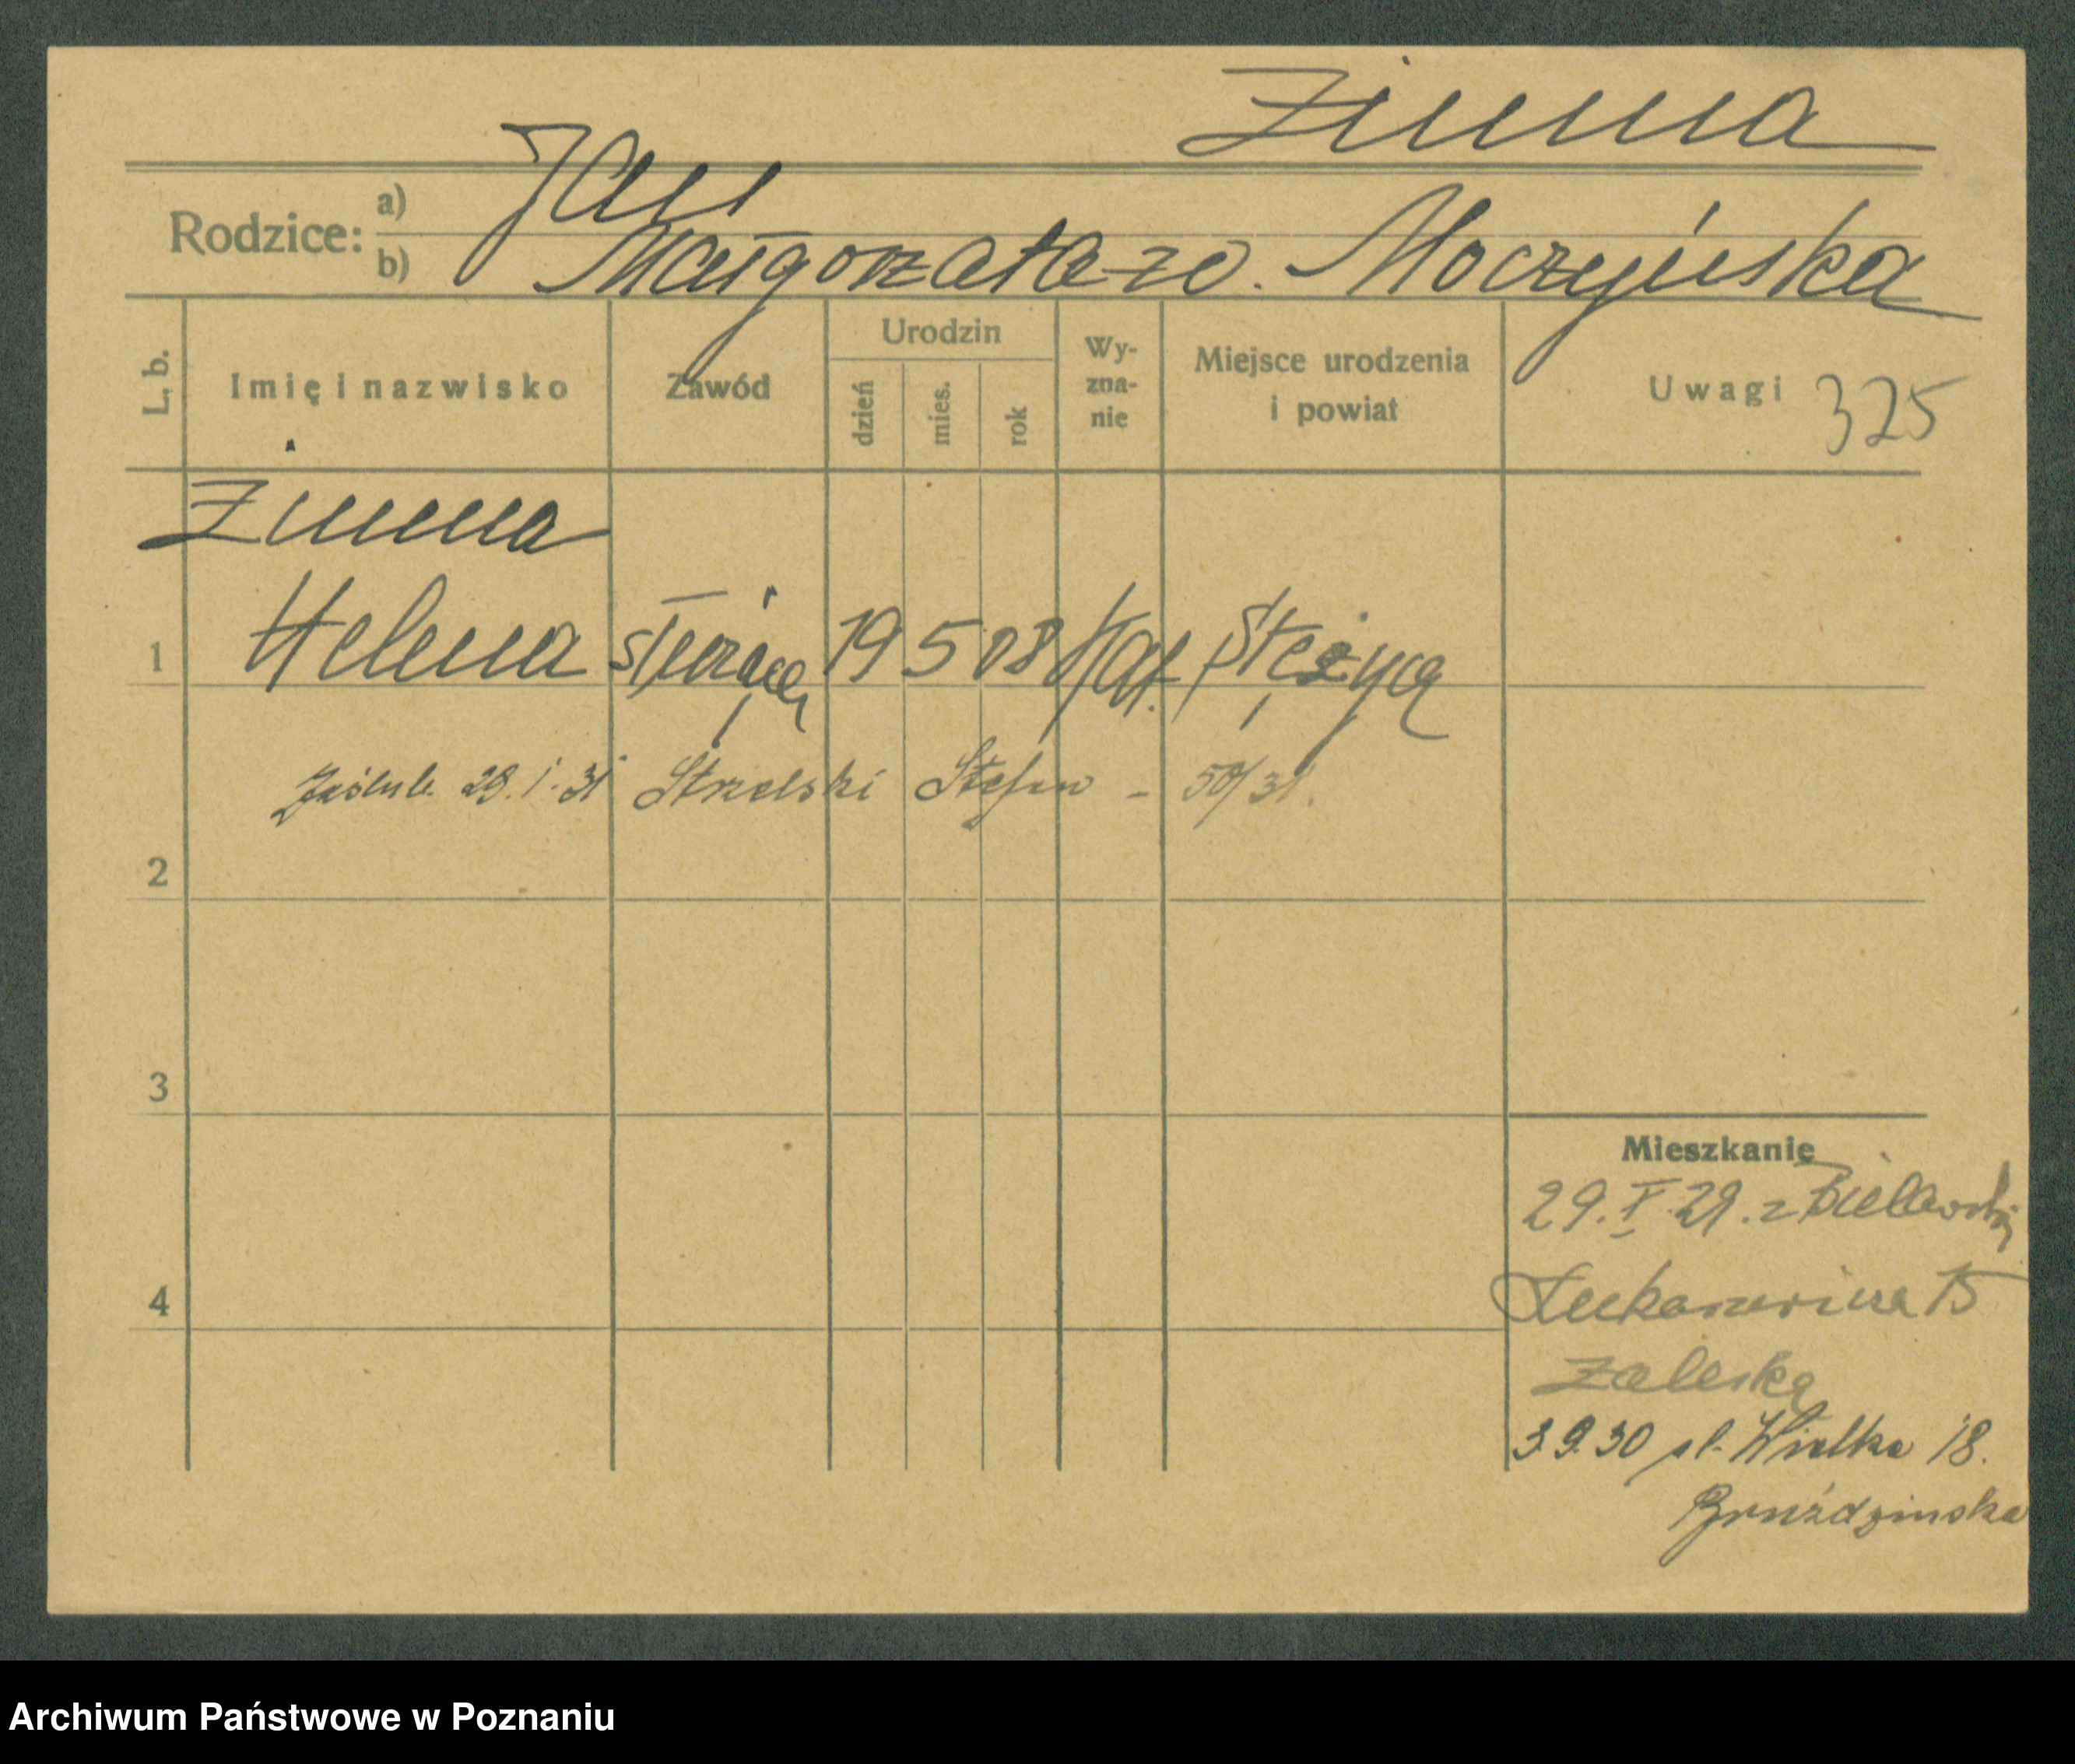 Zimna
Rodzice:
a) Jan
b) Małgorzata zd. Moczyńska
L. b.
Imię i nazwisko
Zawód
Urodzin
dzień
mies.
rok
Wy-
zna-
nie
Miejsce urodzenia
i powiat
Uwagi 325
Zimna
1 Helena służąca 19 5 08 kat. Stężyca
zaślub. 29. 1. 31 Strzelski Stefan – 50/31.
2
3
4
Mieszkanie
29. X. 29. z Bielawski
Łukaszewicza 15
Zaleska
3.9.30 pl. Wielka 18.
Bruździnska
Archiwum Państwowe w Poznaniu